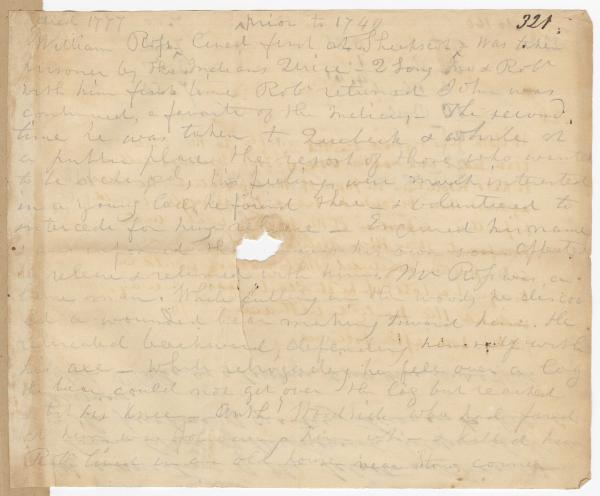 died 1777 prior to 1749 321
William Ross Lived first at Sheepscot & was taken
prisoner by the Indians Twice - 2 Sons Jno & Robt
with him first time Robt returned John was
continued, a favorite of the Indians - The second
time he was taken to Quebeck & while at
a public place the resort of those who wanted
to be redeemed, his feelings were much interested
in a young lad he found there & volunteered to
intercede for his release - Enquired his name
found own son
release & returned with him. Mr Ross was a
lame man. While cutting in the woods he
a wounded bear making toward him. He
retreated backward, defending himself with
his axe - While retrograding he fell over a log
the bear could not get over the log but reached
his knee - Wood side who had
& killed him
Ross lived in an old house near Stone corner